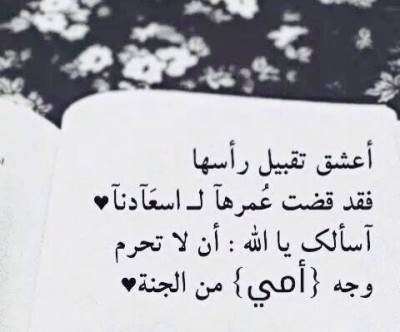 أعشق تقبيل رأسها
فقد قضت عُمرهآ لـ اسعَآدنآ♥
آسألك يا الله : أن لا تحرم
وجه {أمي} من الجنة♥